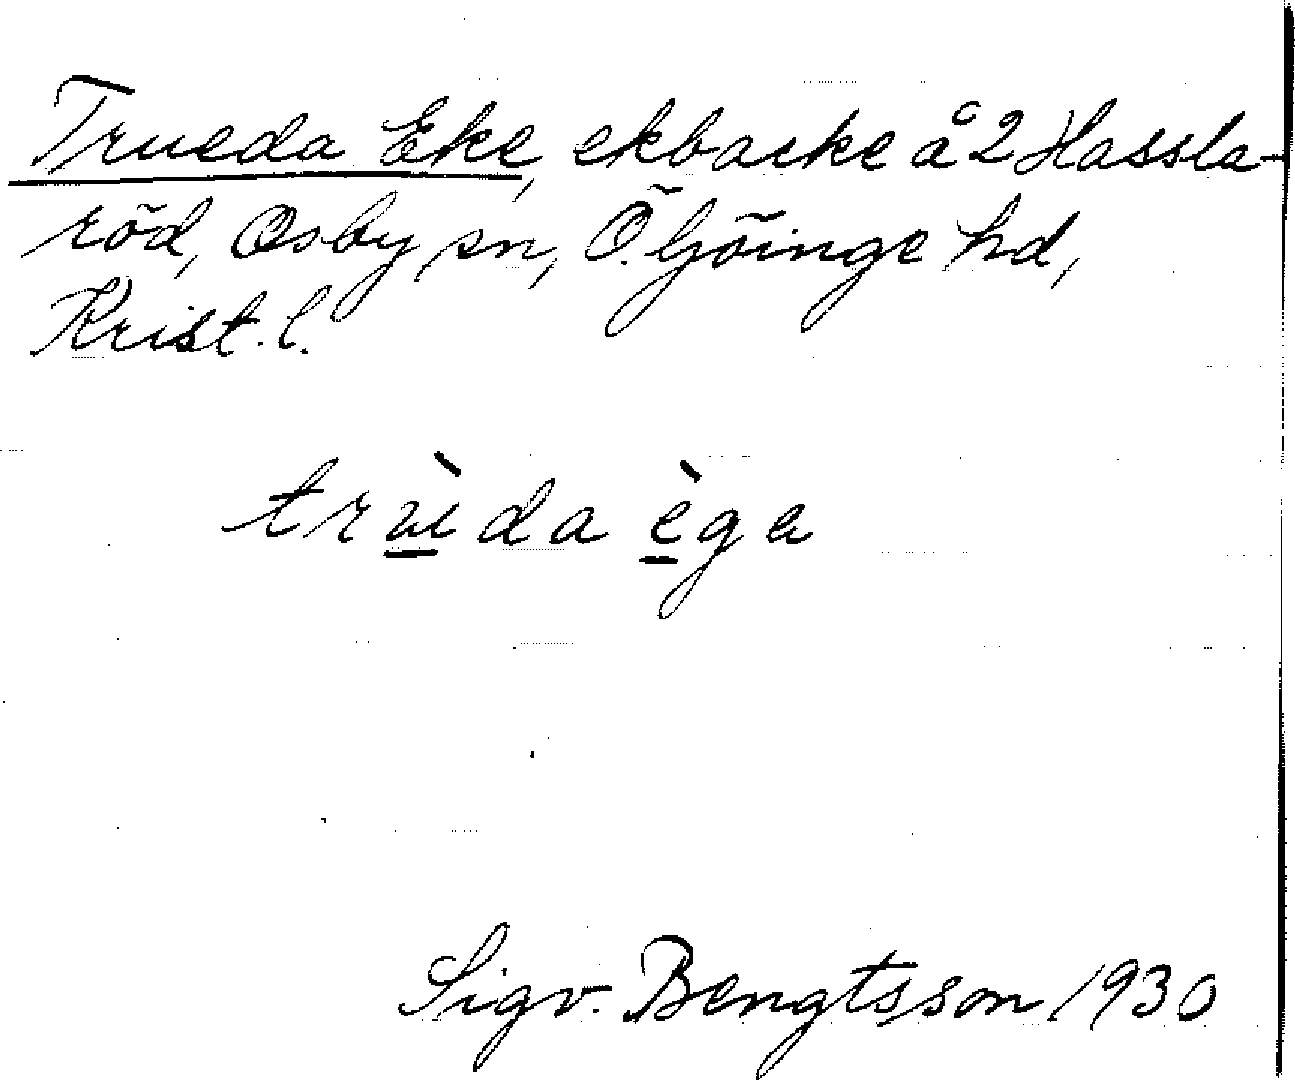 Trueda Eke, ekbacke å 2 Hassla-
röd, Osby sn, Ö. Göinge hd,
Krist. l.
trùeda ège
Sigv. Bengtsson 1930